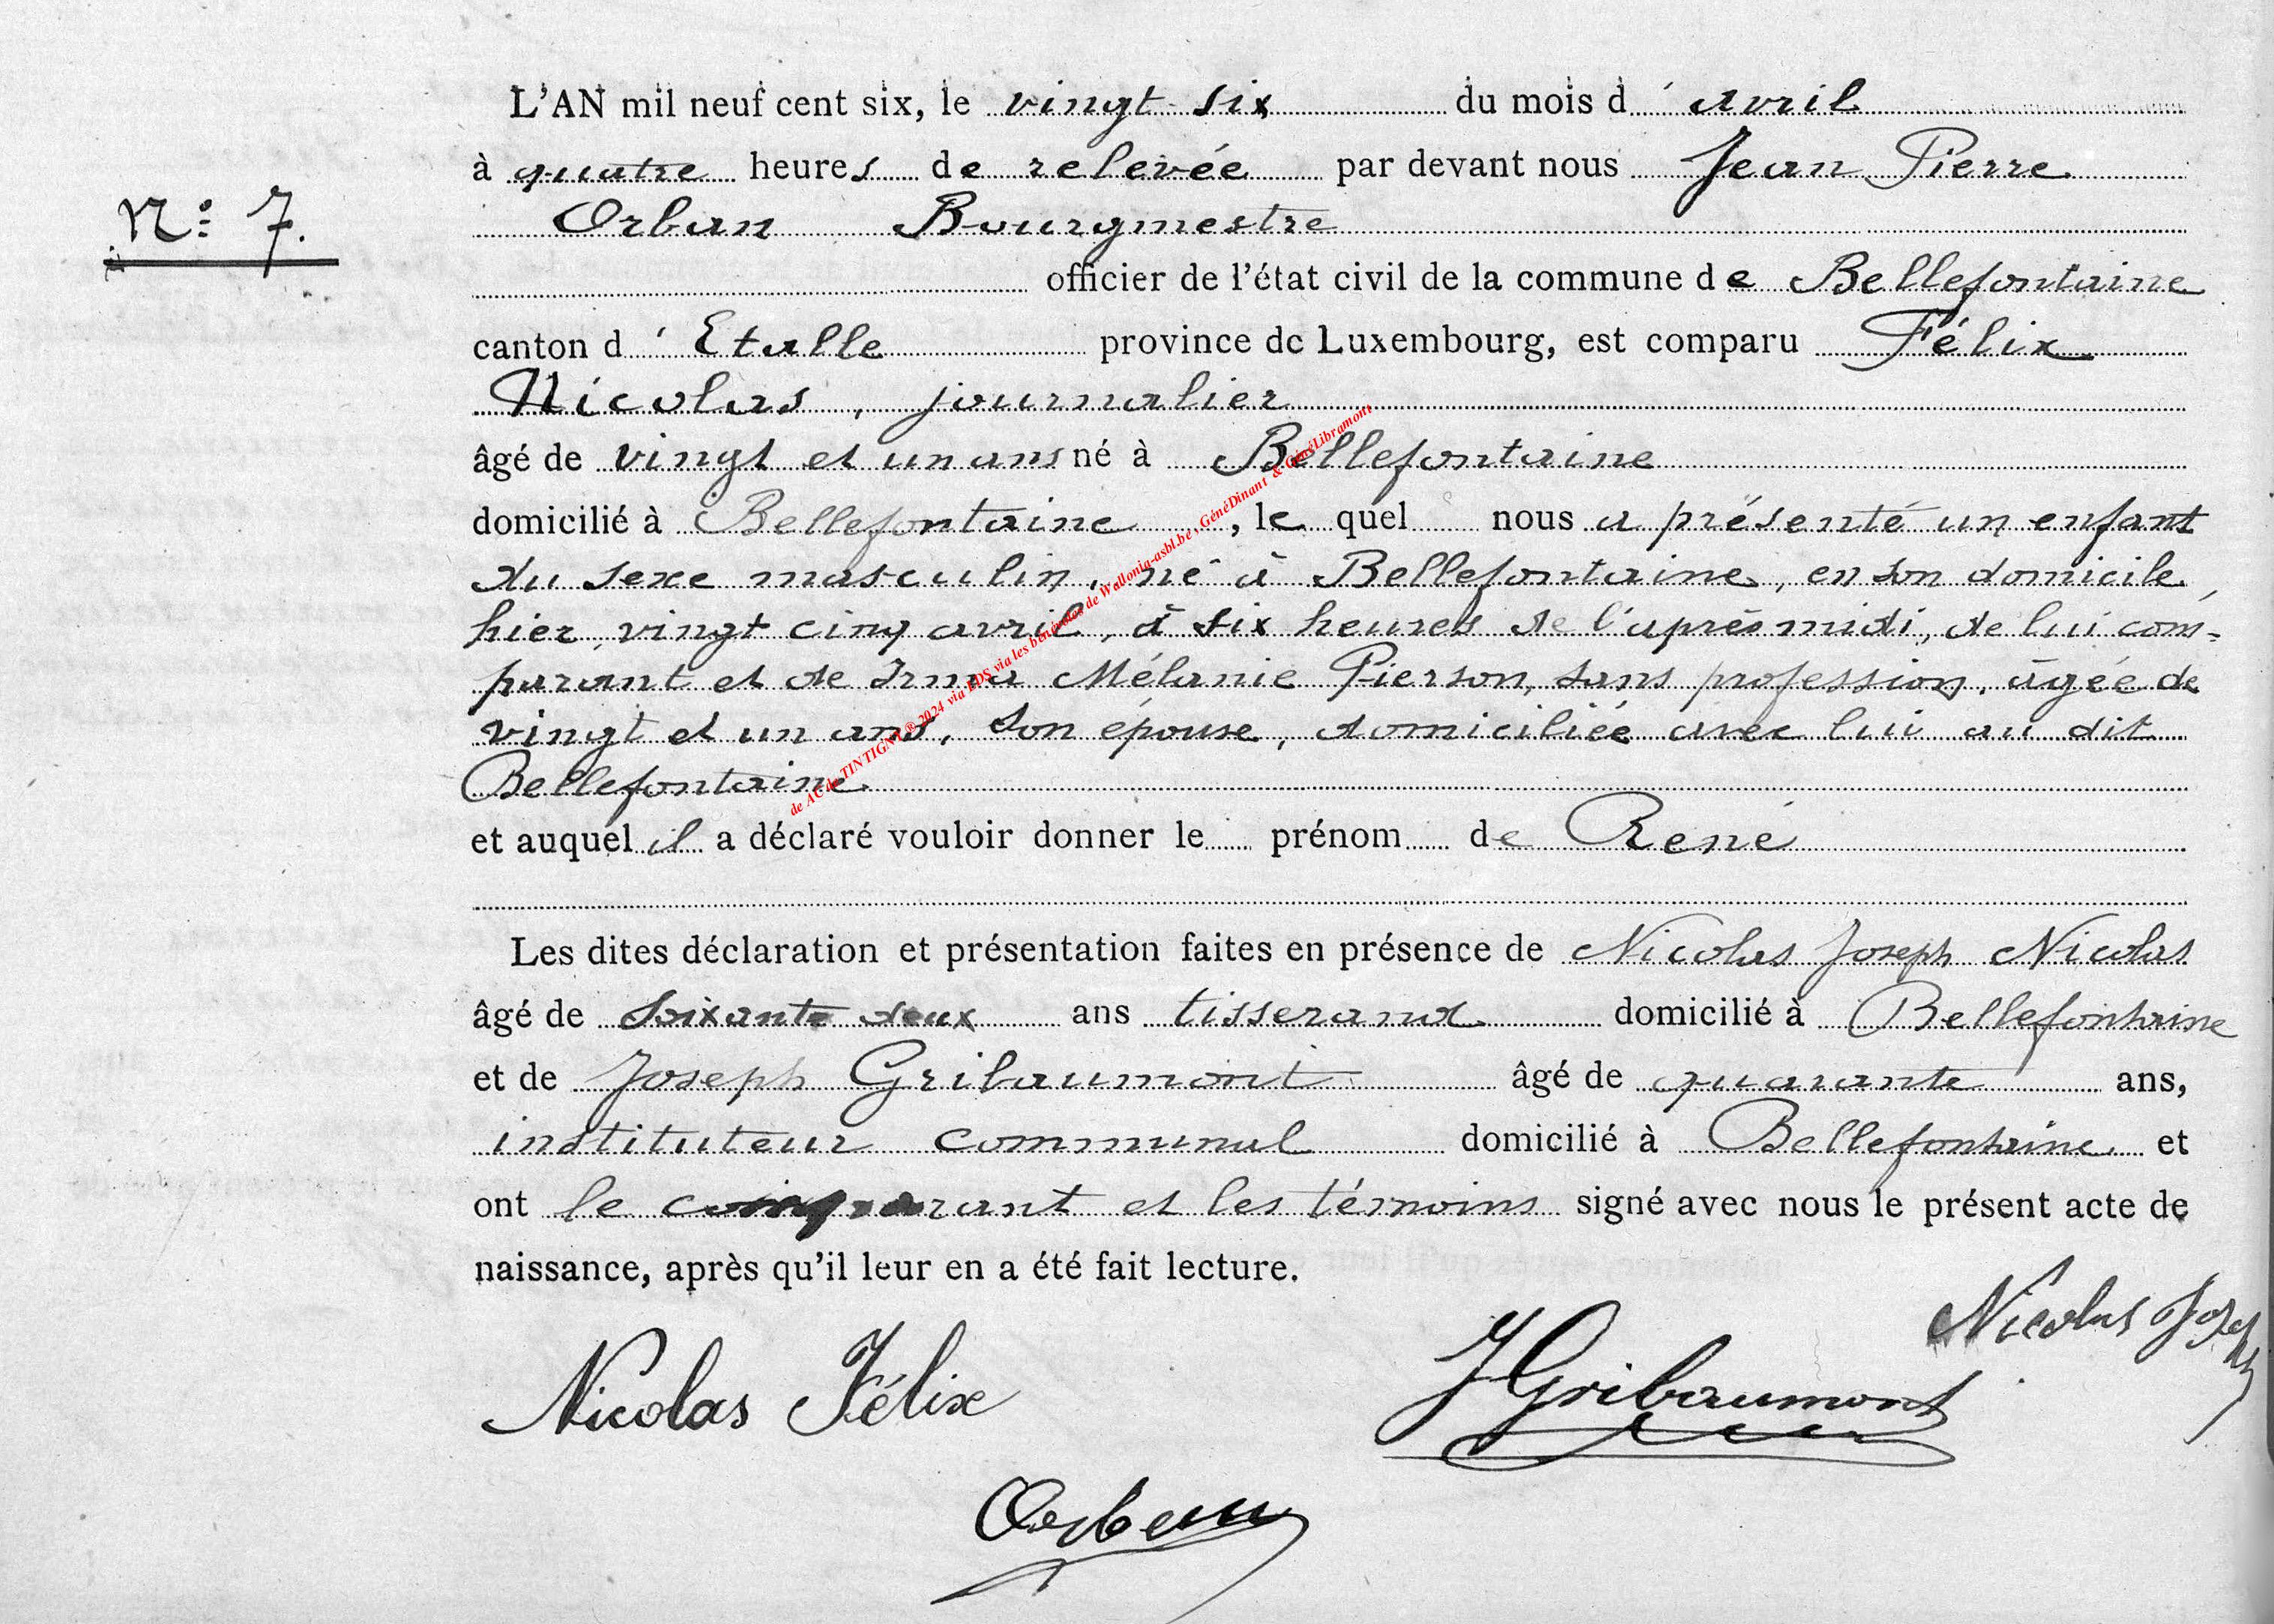 L'AN mil neuf cent six, le vingt six du mois d'avril
à quatre heures de relevée par devant nous Jean Pierre
N° 7.
Orban Bourgmestre
officier de l'état civil de la commune de Bellefontaine
canton d'Etalle province de Luxembourg, est comparu Félix
Nicolas, journalier
âgé de vingt et un ans né à Bellefontaine
domicilié à Bellefontaine, le quel nous a présenté un enfant
du sexe masculin, né à Bellefontaine, en son domicile,
hier, vingt cinq avril, à six heures de l'après midi, de lui com-
parant et de Irma Mélanie Pierson, sans profession, âgée de
vingt et un ans, son épouse, domiciliée avec lui au dit
Bellefontaine
et auquel il a déclaré vouloir donner le prénom de René
Les dites déclaration et présentation faites en présence de Nicolas Joseph Nicolas
âgé de soixante deux ans tisserand domicilié à Bellefontaine
et de Joseph Gribaumont âgé de quarante ans,
instituteur communal domicilié à Bellefontaine et
ont le comparant et les témoins signé avec nous le présent acte de
naissance, après qu'il leur en a été fait lecture.
Nicolas Joseph
Nicolas Félix
J Gribaumont
Orban
de AC de TINTIGNY ® 2024 via EDS via les bénévoles de Wallonia-asbl.be , GénéDinant & GénéLibramont